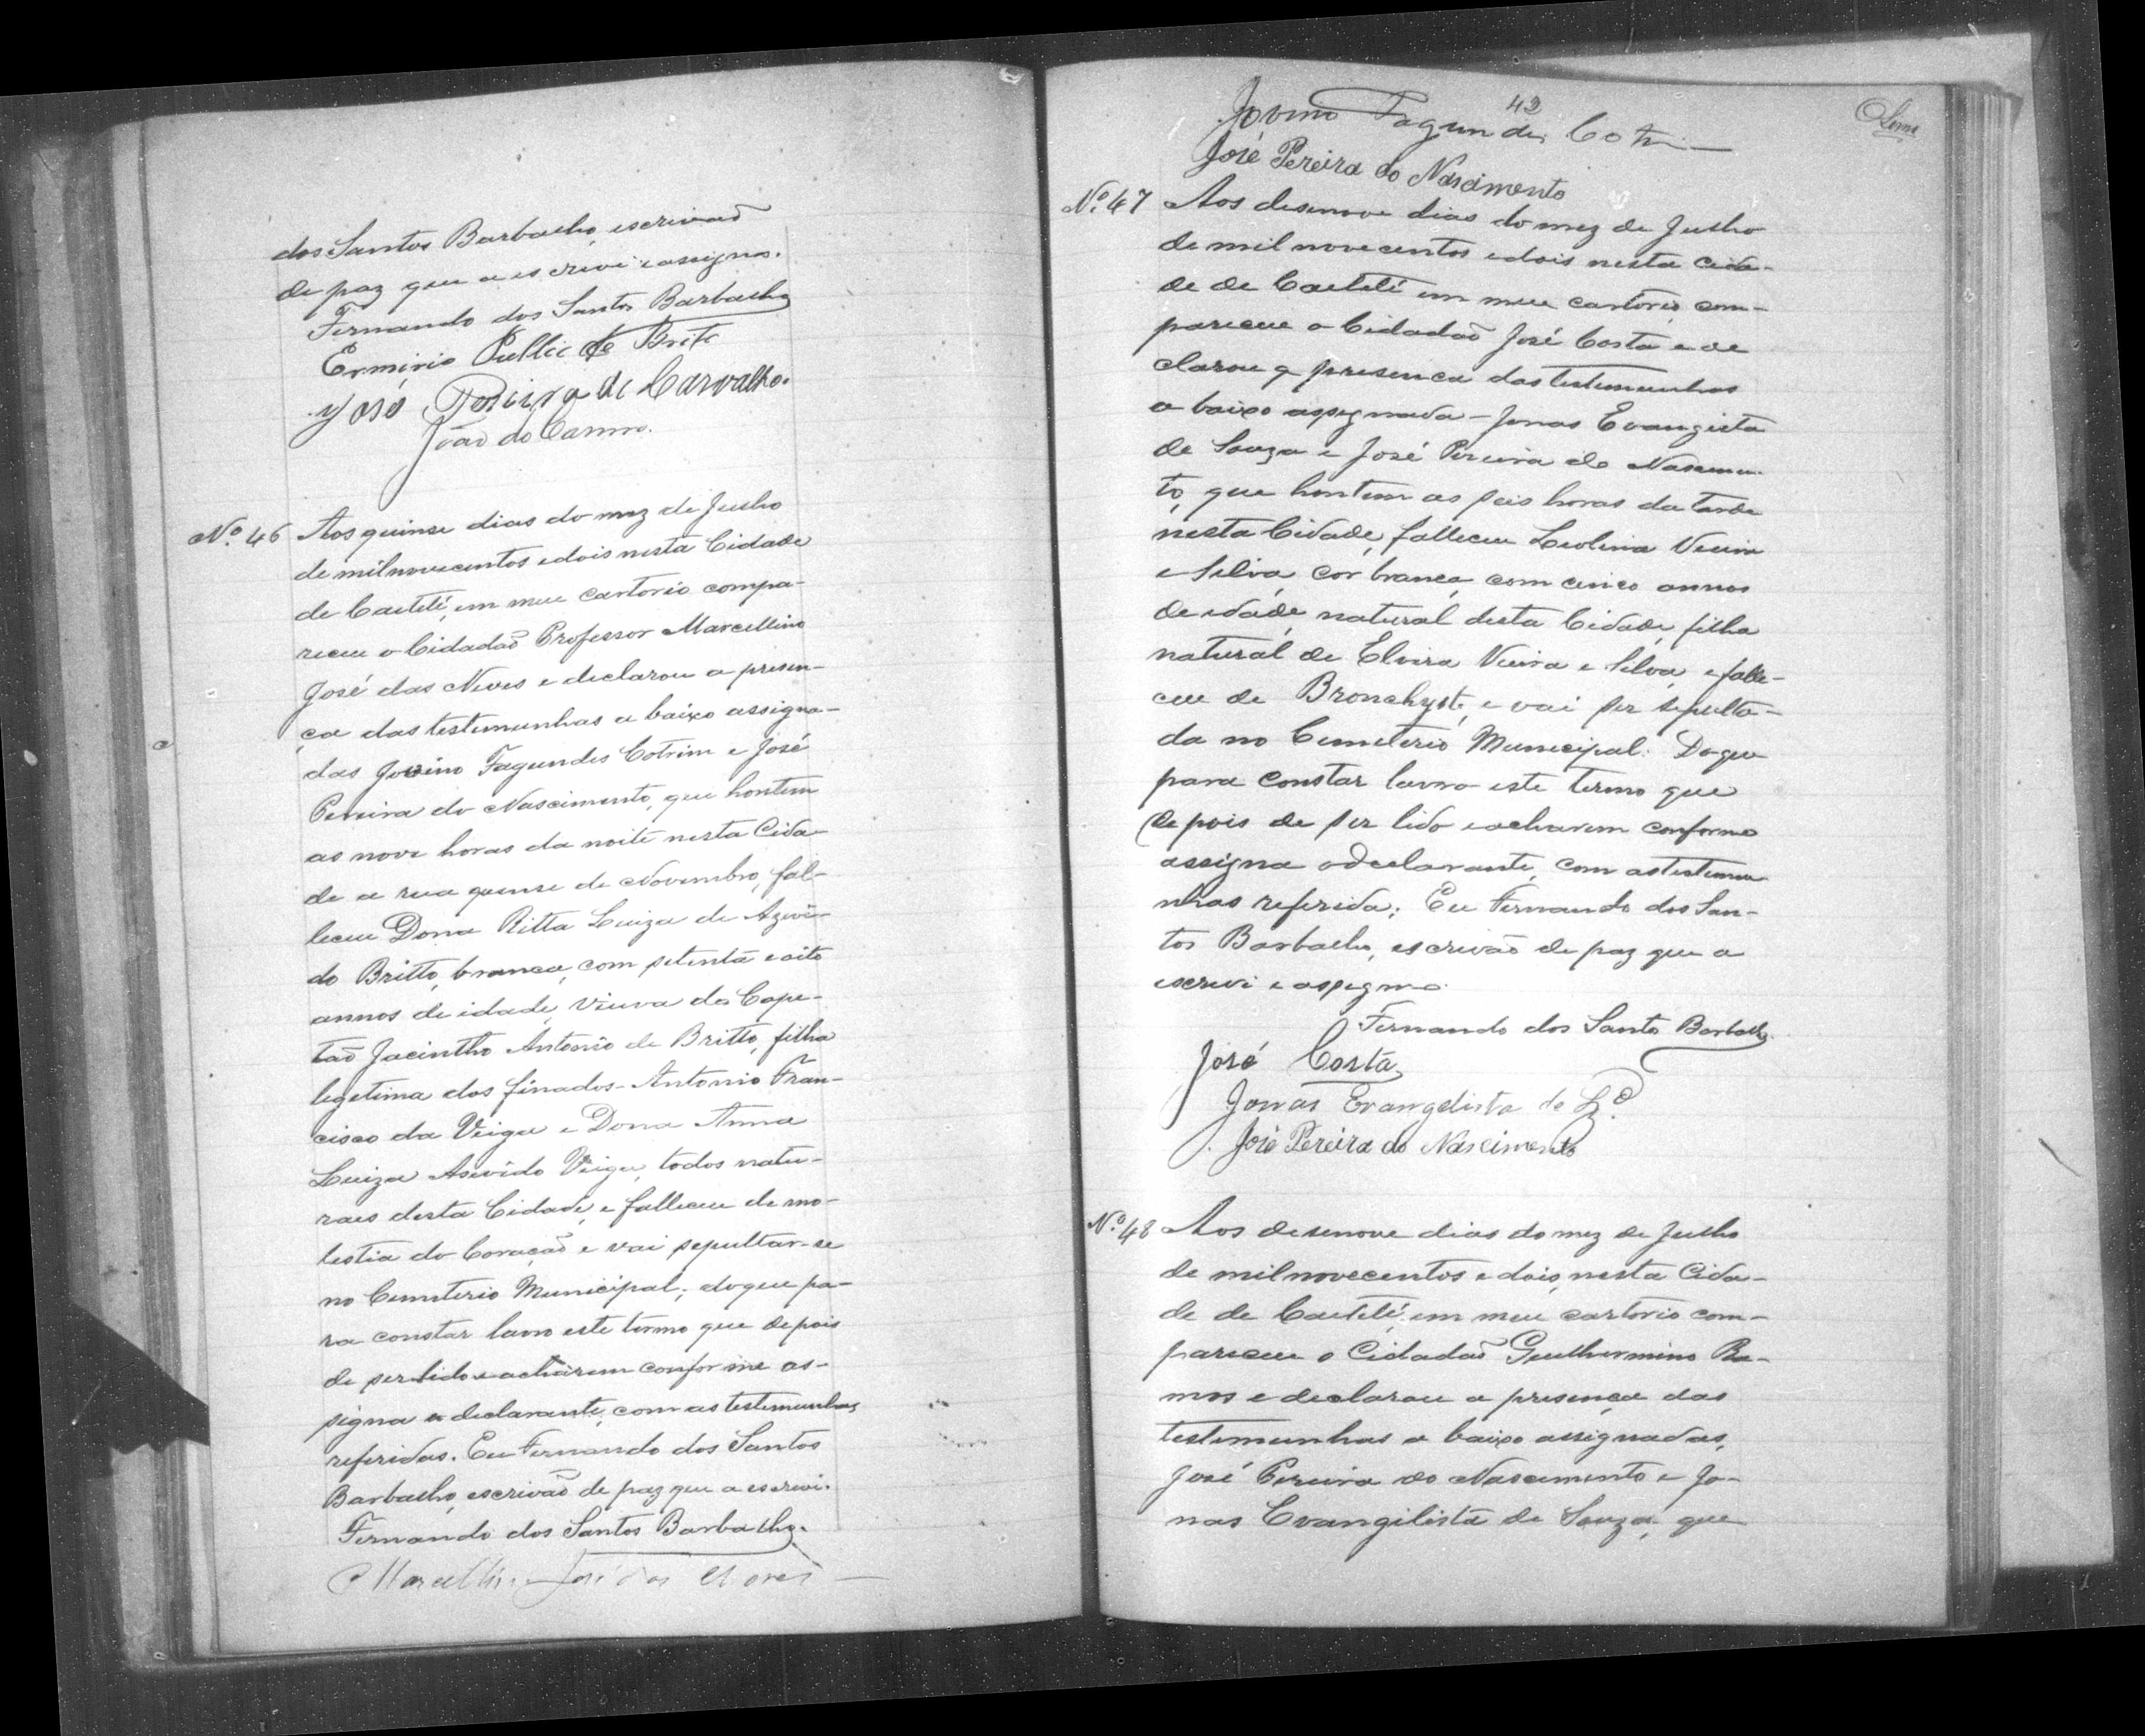 dos Santos Barbalho, escrivaõ
de paz que a escrevi e assigno.
Fernando dos Santos Barbalho
Erminio Publio de Brito
José Pereira de Carvalho.
João do Carmo.
Nº 46 Aos quinse dias do mez de Julho
de mil novecentos e dois nesta Cidade
de Caeteté, em meu Cartorio compa-
receu o Cidadaõ Professor Marcellino
José das Neves e declarou a presen-
ça das testemunhas a baixo assigna-
das Jovino Fagundes Cotrim e José
Pereira do Nascimento, que hontem
as nove horas da noite nesta Cida-
de a rua quinse de Novembro, fal-
leceu Dona Ritta Luiza de Azevê-
do Britto, branca, com setenta e oito
annos de idade, viuva do Cape-
taõ Jacintho Antonio de Britto, filha
legetima dos finados Antonio Fran-
cisco da Veiga e Dona Anna
Luiza Asevêdo Veiga, todos natu-
raes desta Cidade, e falleceu de mo-
lestia do Coraçaõ e vai sepultar-se
no Cemeterio Municipal; do que pa-
ra constar lavro este termo que depois
de ser lido e acharem conforme as-
signa o declarante, com as testemunhas
referidas. Eu Fernando dos Santos
Barbalho, escrivaõ de paz que a escrevi.
Fernando dos Santos Barbalho.
Marcellino José das Neves
42
Jovino Fagundes Cotrim
José Pereira do Nascimento
Nº 47 Aos desenove dias do mez de Julho
de mil novecentos e dois nesta Cida-
de de Caeteté em meu cartorio com-
pareceu o Cidadaõ José Costa e de
clarou a presenca das testemunhas
a baixo assegnada - Jonas Evangista
de Souza e José Pereira do Nascimen-
to, que hontem as seis horas da tarde
nesta Cidade, falleceu Leolina Vieira
e Silva, cor branca, com cinco annos
de idade, natural desta Cidade, filha
natural de Elvira Vieira e Silva, e falle-
ceu de Bronchyte, e vai ser sepulta-
da no Cemeterio Municipal. Do que
para constar lavro este termo que
depois de ser lido e acharem conforme
assigna o declarante, com as testemu
nhas referida; Eu Fernando dos San-
tos Barbalho, escrivaõ de paz que a
escrevi e assegno.
Fernando dos Santos Barbalho.
José Costa
Jonas Evangelista de Sz.ª
José Pereira do Nascimento
Nº 48 Aos desenove dias do mez de Julho
de mil novecentos e dois, nesta Cida-
de de Caeteté, em meu cartorio com-
pareceu o Cidadaõ Guilhermino Ra-
mos e declarou a presença das
testemunhas a baixo assignadas,
José Pereira do Nascimento e Jo-
nas Evangilista de Souza, que